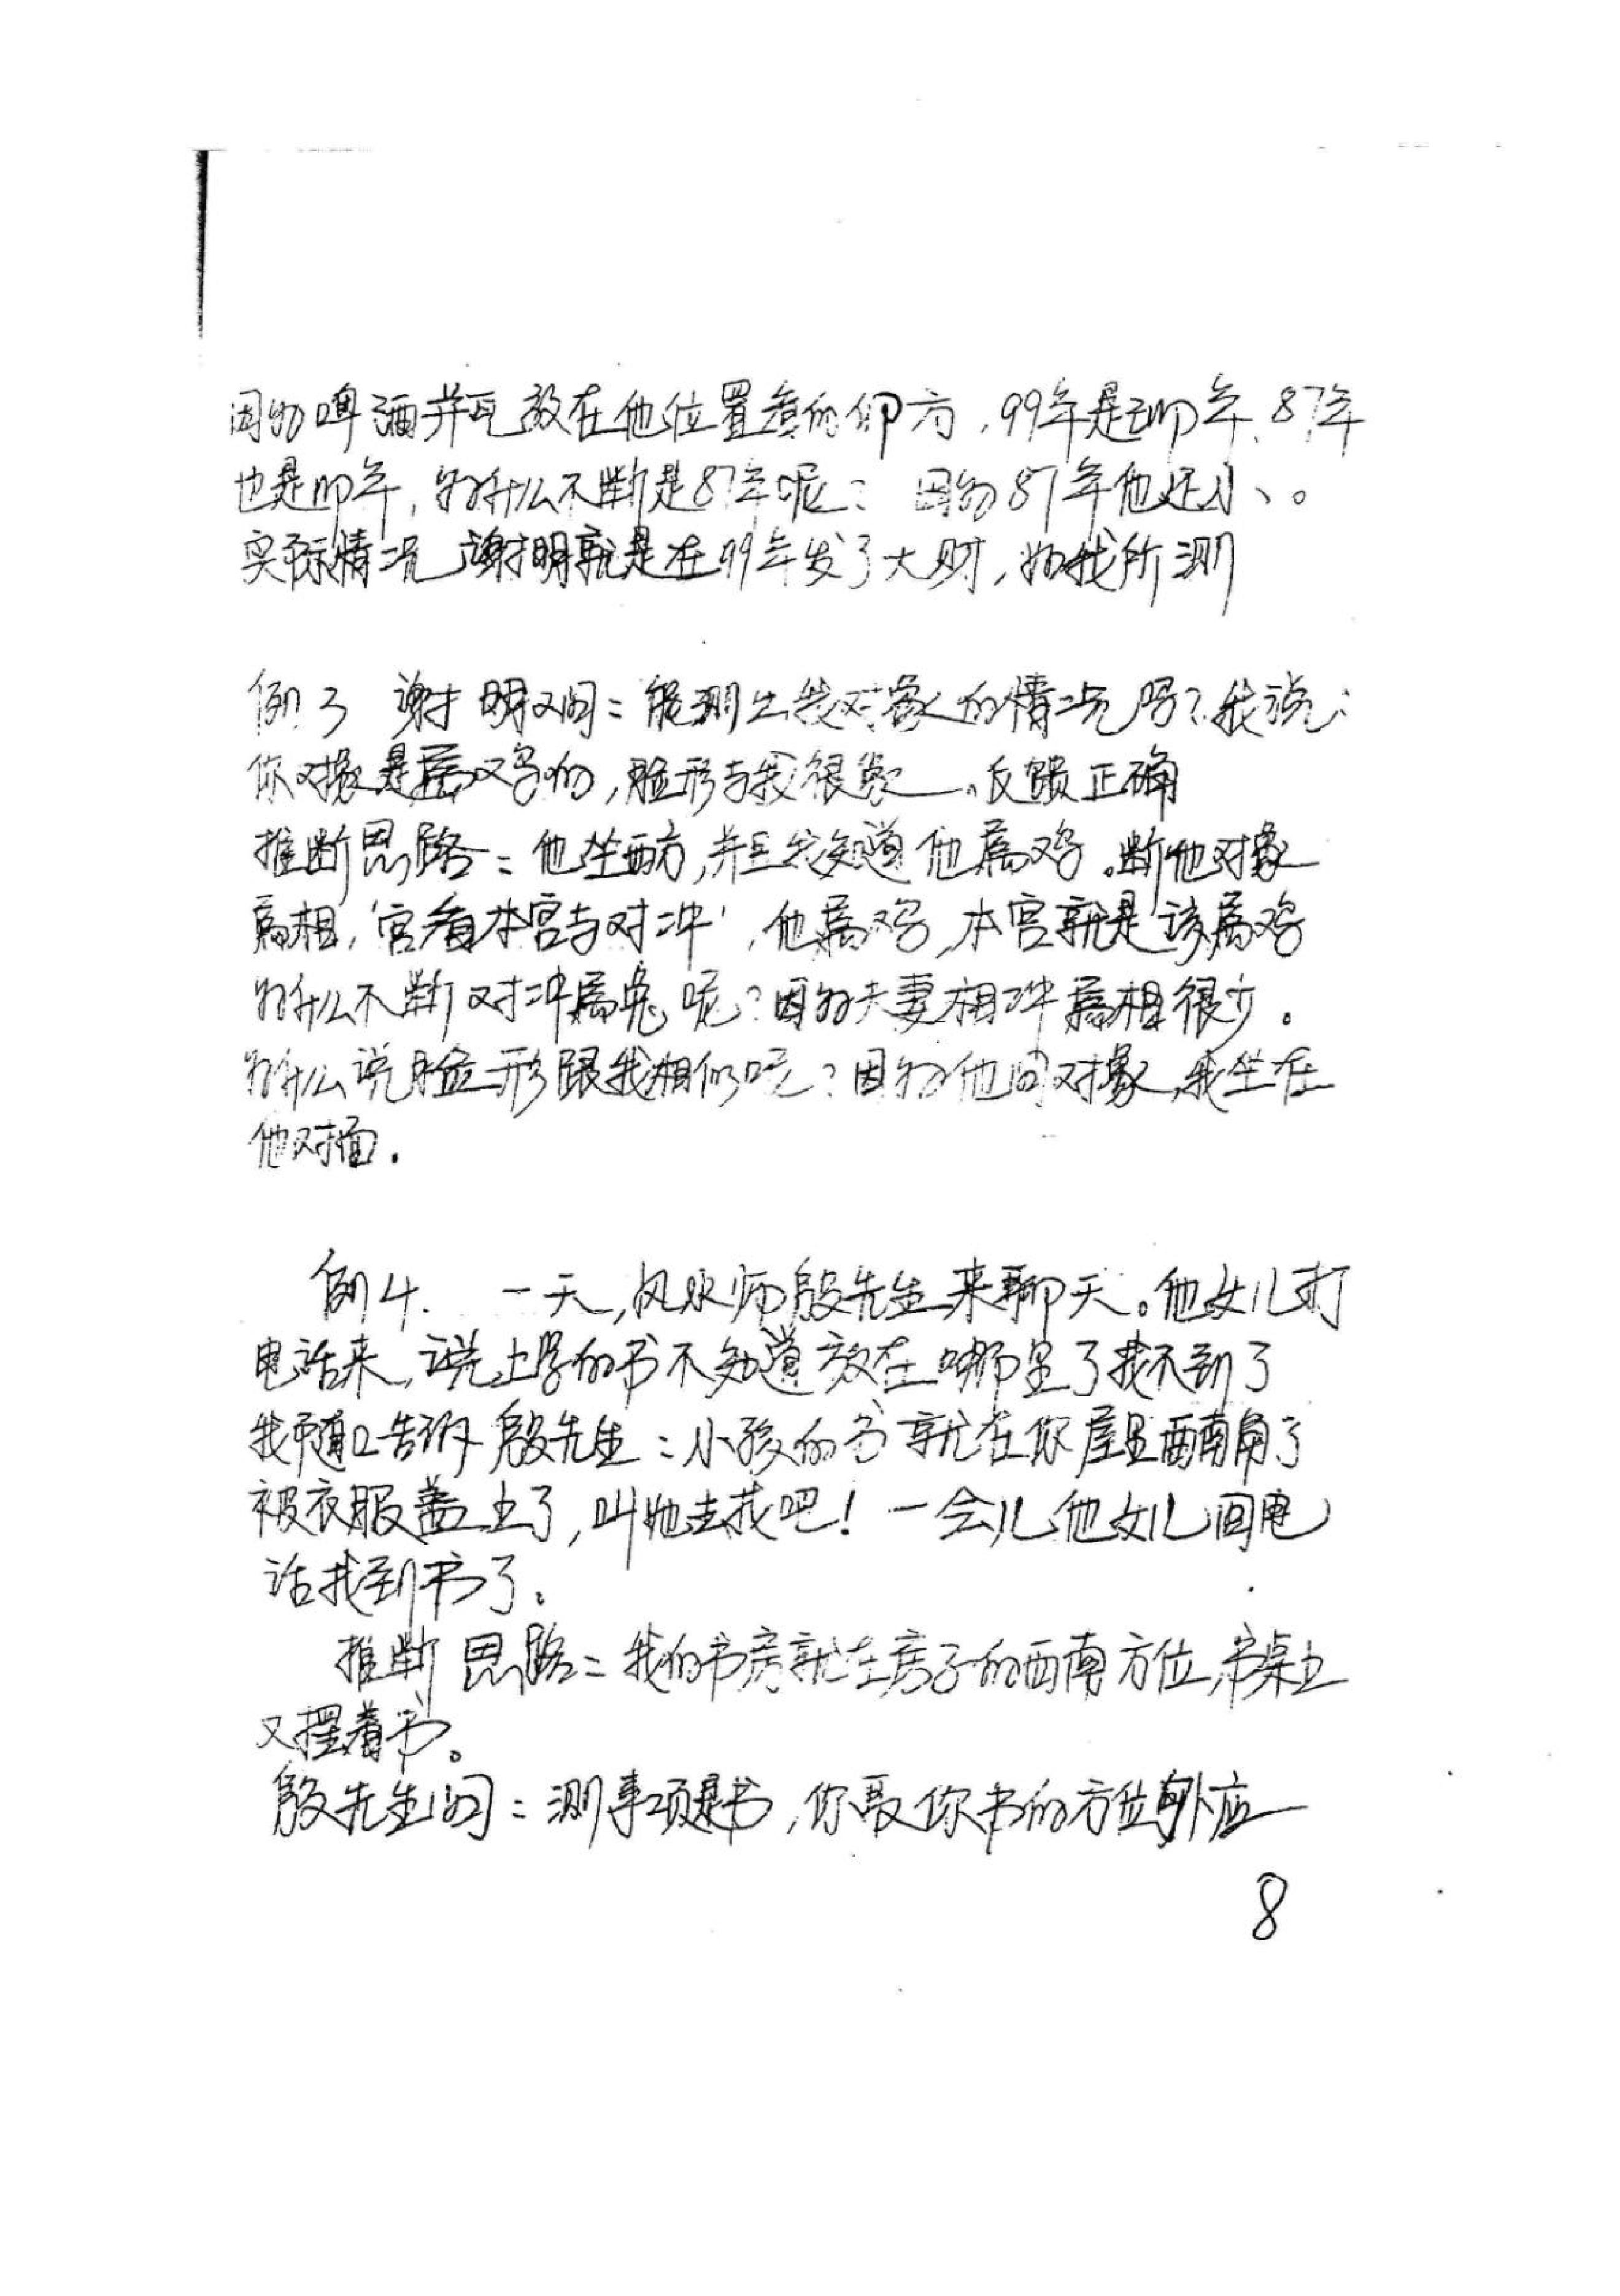 因为啤酒并且放在他位置的卯方，99年是卯年、87年
也是卯年，为什么不断是87年呢？因为87年他还小。
实际情况谢明就是在99年发了大财，如我所测
例3 谢明又问：能测出我对象的情况吗？我说：
你对象是属鸡的，脸形与我很像。反馈正确
推断思路：他坐西方，并且我知道他属鸡。断他对象
属相，'宫看本宫与对冲'，他属鸡，本宫就是该属鸡
为什么不断对冲属兔呢？因为夫妻相冲属相很少。
为什么说脸形跟我相似呢？因为他问对象，我坐在
他对面.
例4. 一天，风水师殷先生来聊天。他女儿打
电话来，说上学的书不知道放在哪里了找不到了
我随口告诉殷先生：小孩的书就在你屋里西南角了
被衣服盖上了，叫她去找吧！一会儿他女儿回电
话找到书了。
推断思路：我的书房就在房子的西南方位，书桌上
又摆着书。
殷先生问：测事项是书，你取你书的方位外应
8